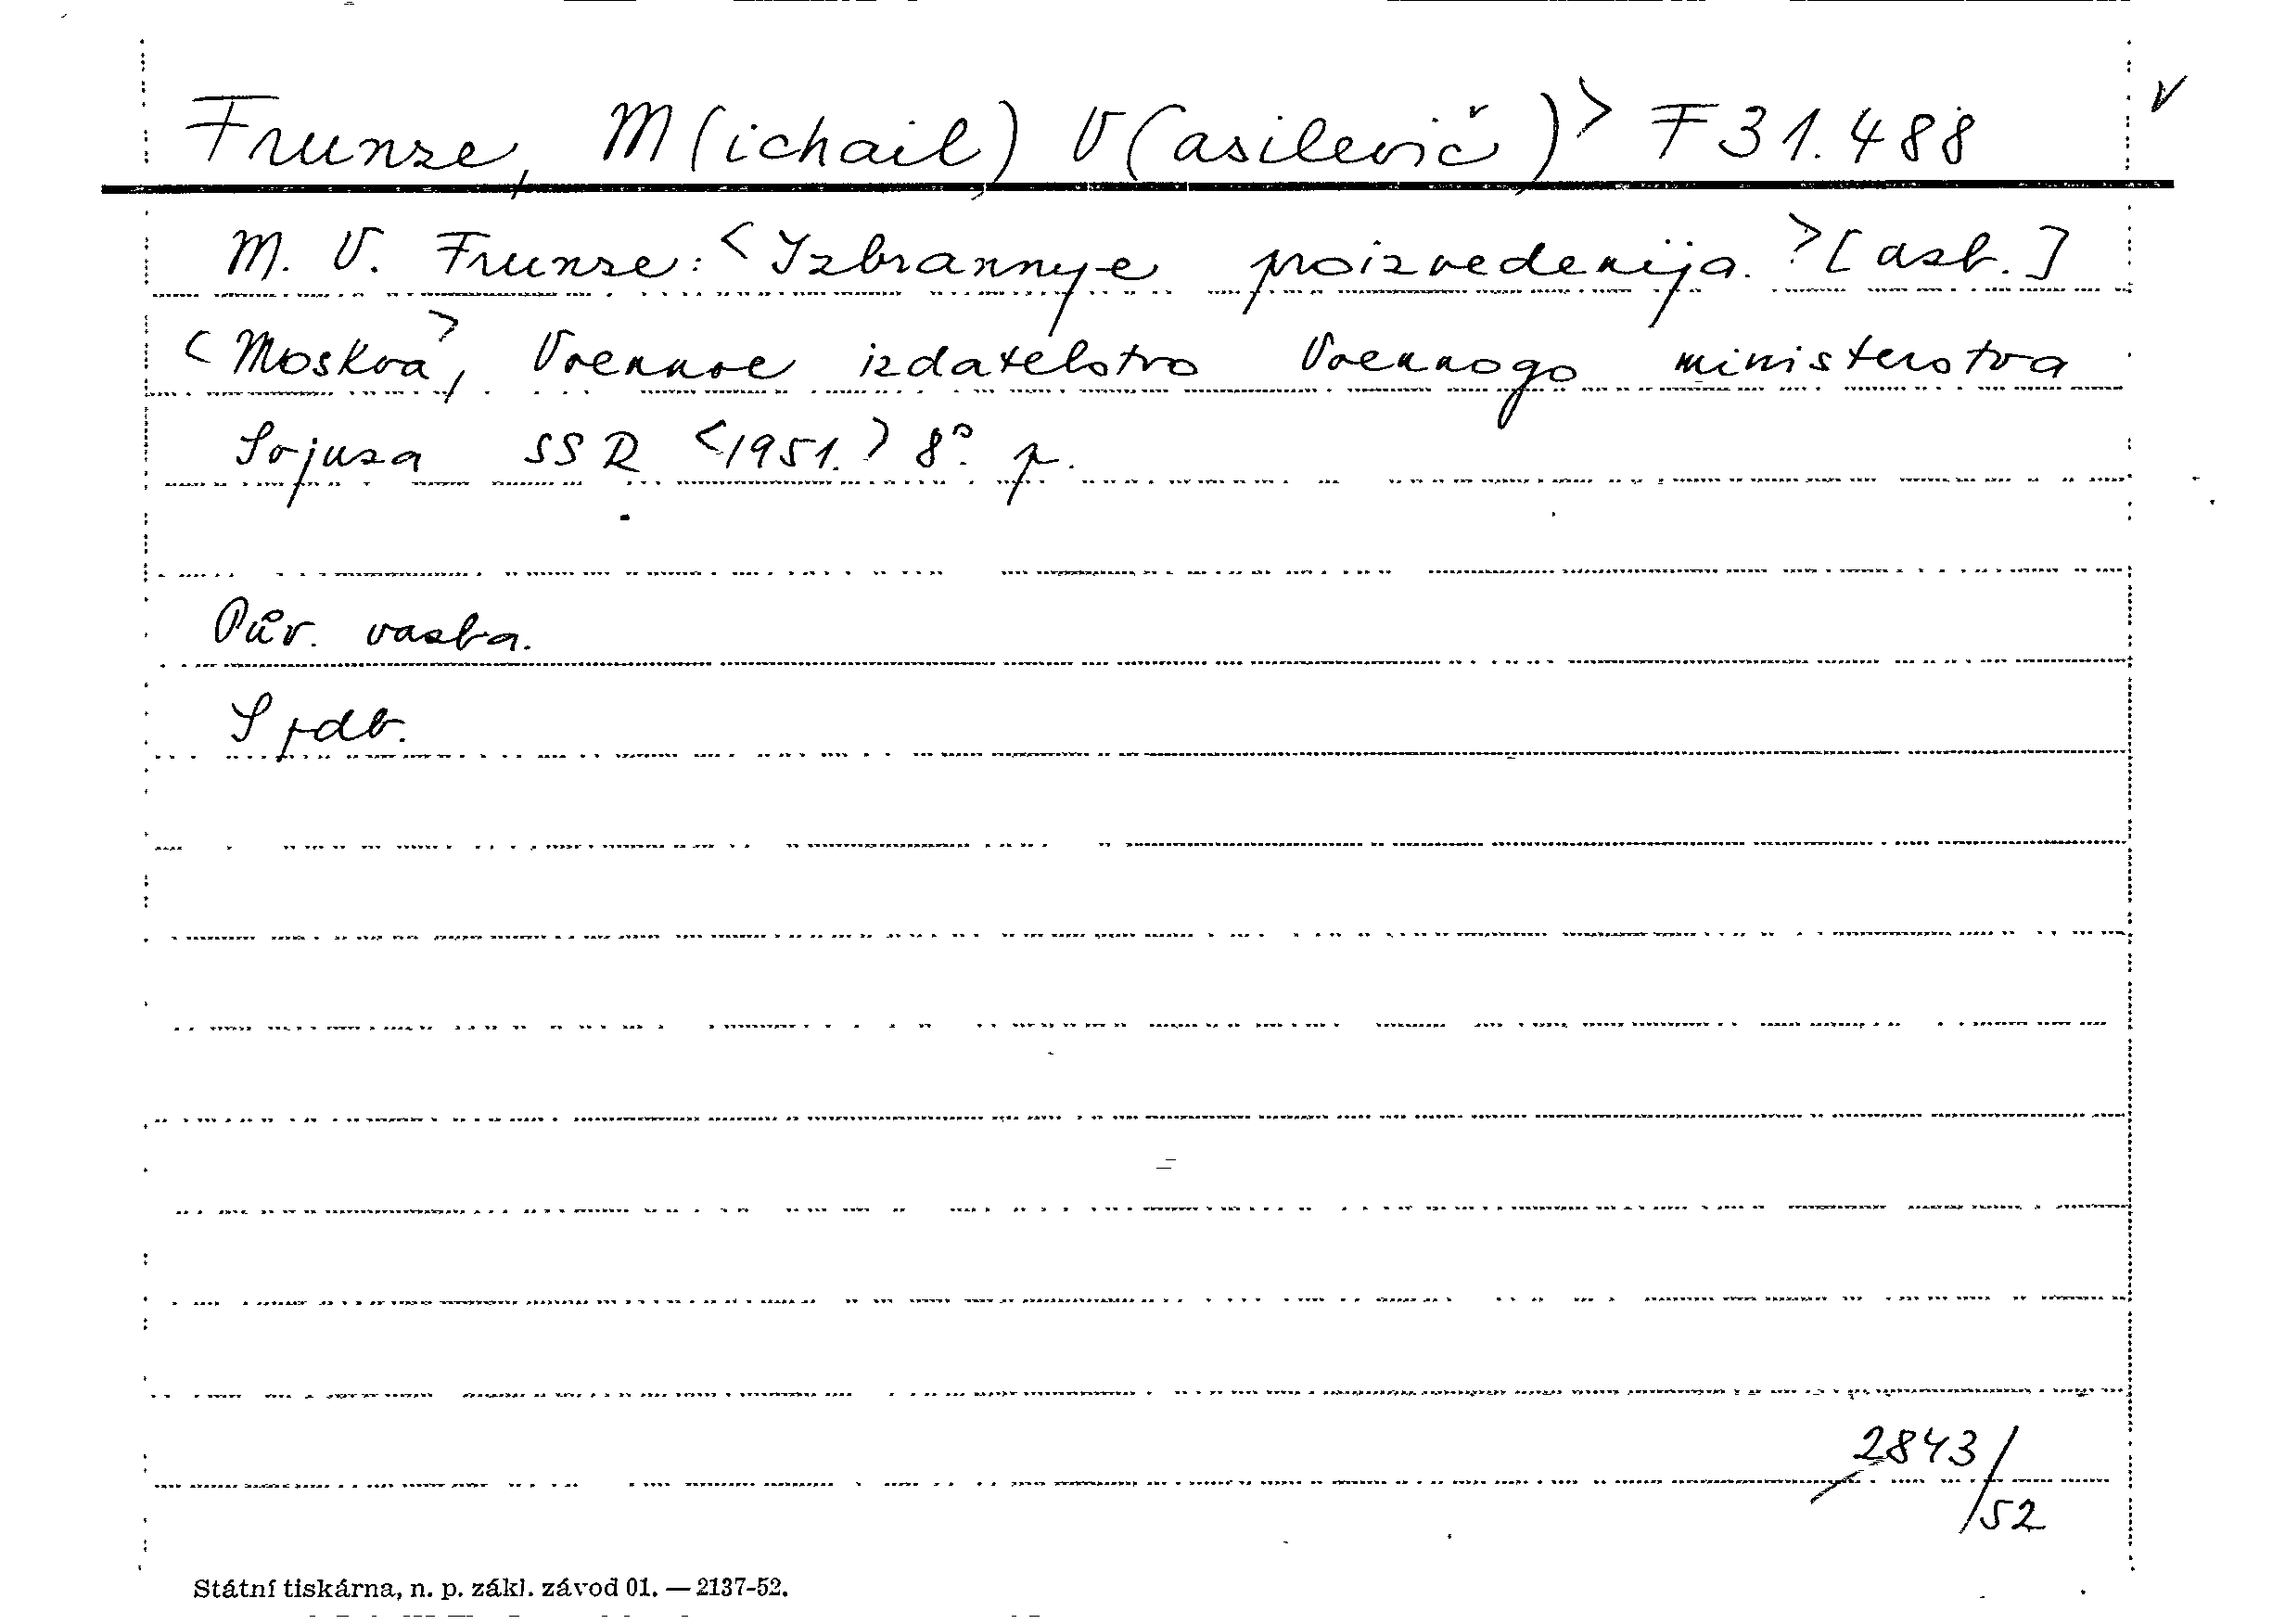 Frunze, M(ichail) V(asilevič)> F 31.488 v
M. V. Frunze: <Izbrannye proizvedenija.> [azb.]
<Moskva>, Voennoe izdatelstvo Voennogo ministerstva
Sojuza SSR <1951.> 8°. p.
Pův. vazba.
S pdb.
2843/52
Státní tiskárna, n. p. zákl. závod 01. — 2137-52.